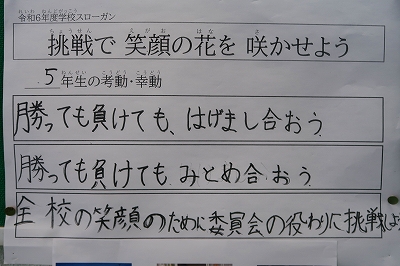 令和6年度学校スローガン
挑戦で 笑顔の花を 咲かせよう
5年生の考動・幸動
勝っても負けても、はげまし合おう
勝っても負けても みとめ合おう
全校の笑顔のために委員会の役わりに挑戦しよ